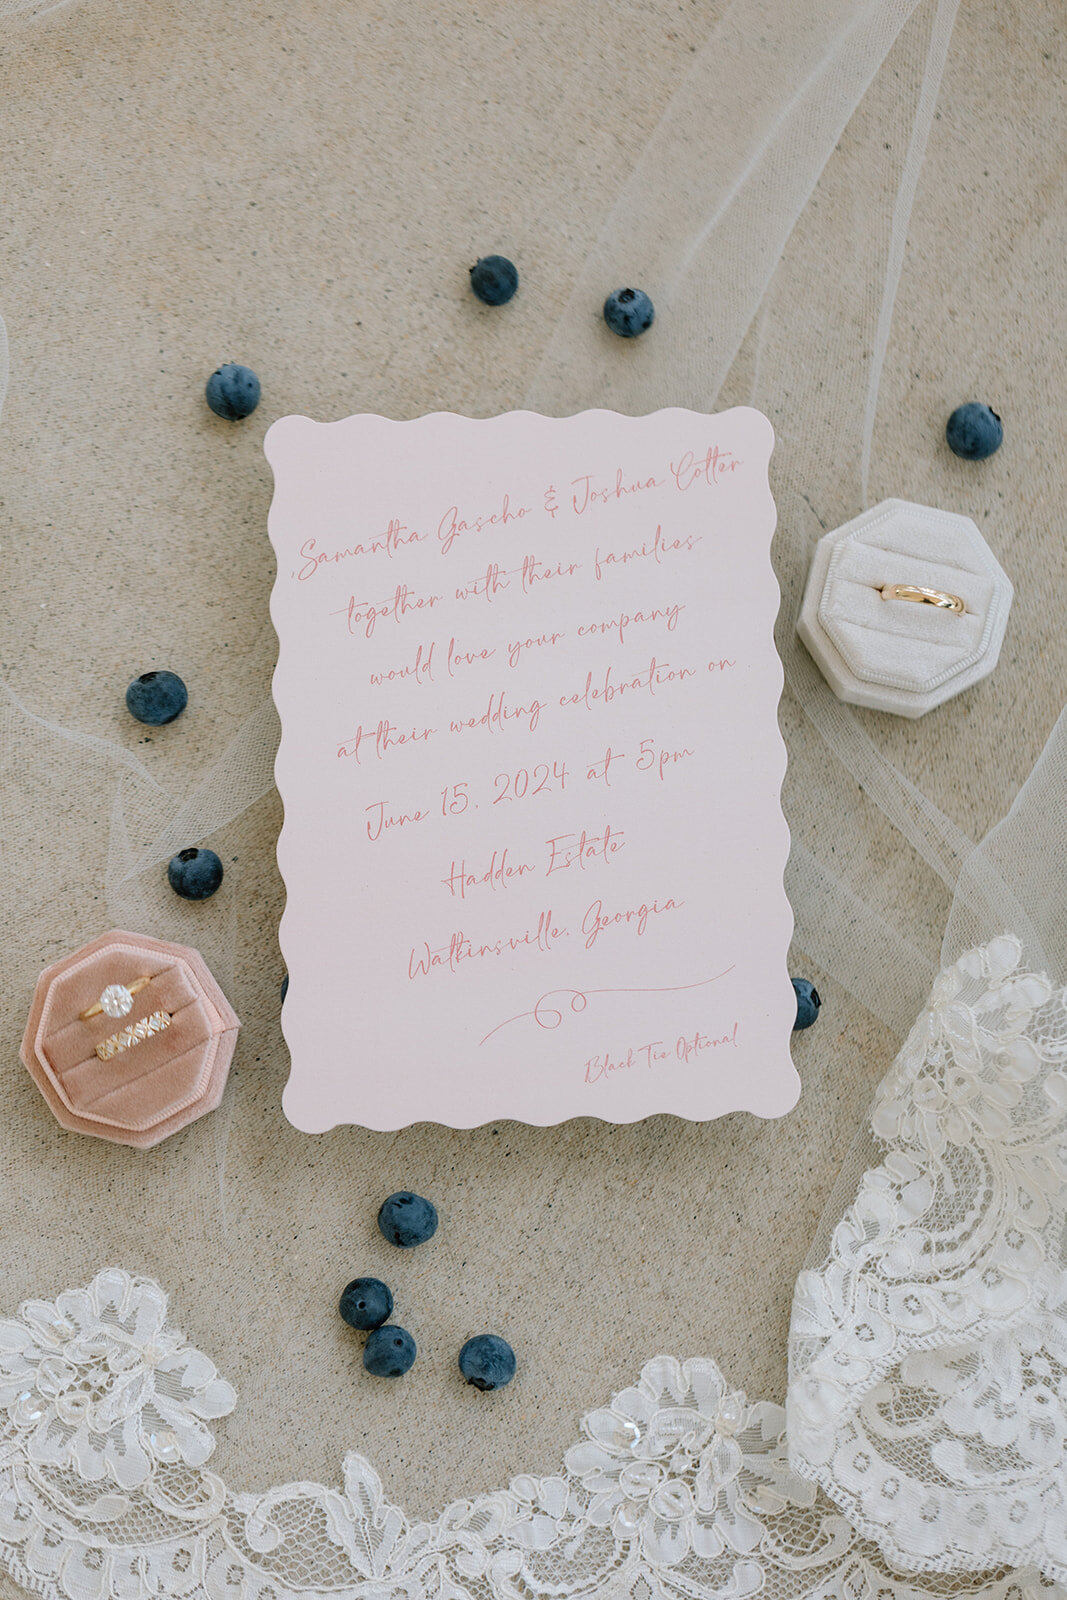 Samantha Gascho & Joshua Cotter
together with their families
would love your company
at their wedding celebration on
June 15, 2024 at 5pm
Hadden Estate
Watkinsville, Georgia
Black Tie Optional